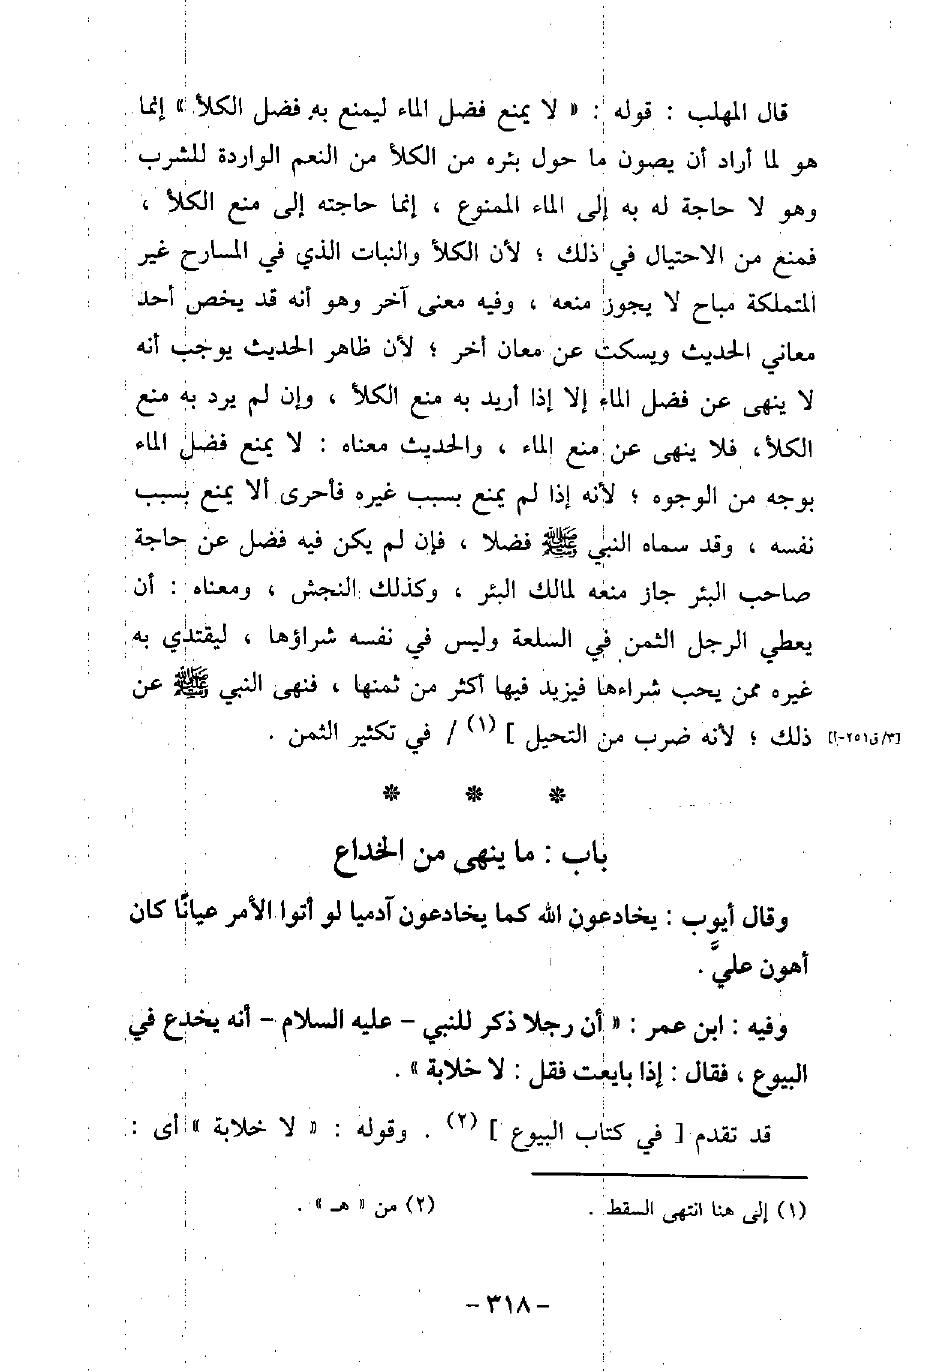 قال المهلب : قوله : « لا يمنع فضل الماء ليمنع به فضل الكلأ » إنما
هو لما أراد أن يصون ما حول بئره من الكلأ من النعم الواردة للشرب
وهو لا حاجة له به إلى الماء الممنوع ، إنما حاجته إلى منع الكلأ ،
فمنع من الاحتيال في ذلك ؛ لأن الكلأ والنبات الذي في المسارح غير
المتملكة مباح لا يجوز منعه ، وفيه معنى آخر وهو أنه قد يخص أحد
معاني الحديث ويسكت عن معان أخر ؛ لأن ظاهر الحديث يوجب أنه
لا ينهى عن فضل الماء إلا إذا أريد به منع الكلأ ، وإن لم يرد به منع
الكلأ، فلا ينهى عن منع الماء ، والحديث معناه : لا يمنع فضل الماء
بوجه من الوجوه ؛ لأنه إذا لم يمنع بسبب غيره فأحرى ألا يمنع بسبب
نفسه ، وقد سماه النبي ﷺ فضلا ، فإن لم يكن فيه فضل عن حاجة
صاحب البئر جاز منعه لمالك البئر ، وكذلك النجش ، ومعناه : أن
يعطي الرجل الثمن في السلعة وليس في نفسه شراؤها ، ليقتدي به
غيره ممن يحب شراءها فيزيد فيها أكثر من ثمنها ، فنهى النبي ﷺ عن
[٣/ق٢٥١-أ] ذلك ؛ لأنه ضرب من التحيل ] (١) / في تكثير الثمن .
* * *
باب : ما ينهى من الخداع
وقال أيوب : يخادعون الله كما يخادعون آدميا لو أتوا الأمر عيانًا كان
أهون عليَّ .
وفيه : ابن عمر : « أن رجلا ذكر للنبي - عليه السلام - أنه يخدع في
البيوع ، فقال : إذا بايعت فقل : لا خلابة » .
قد تقدم [ في كتاب البيوع ] (٢) . وقوله : « لا خلابة » أى :
(١) إلى هنا انتهى السقط . (٢) من « هـ » .
- ٣١٨ -